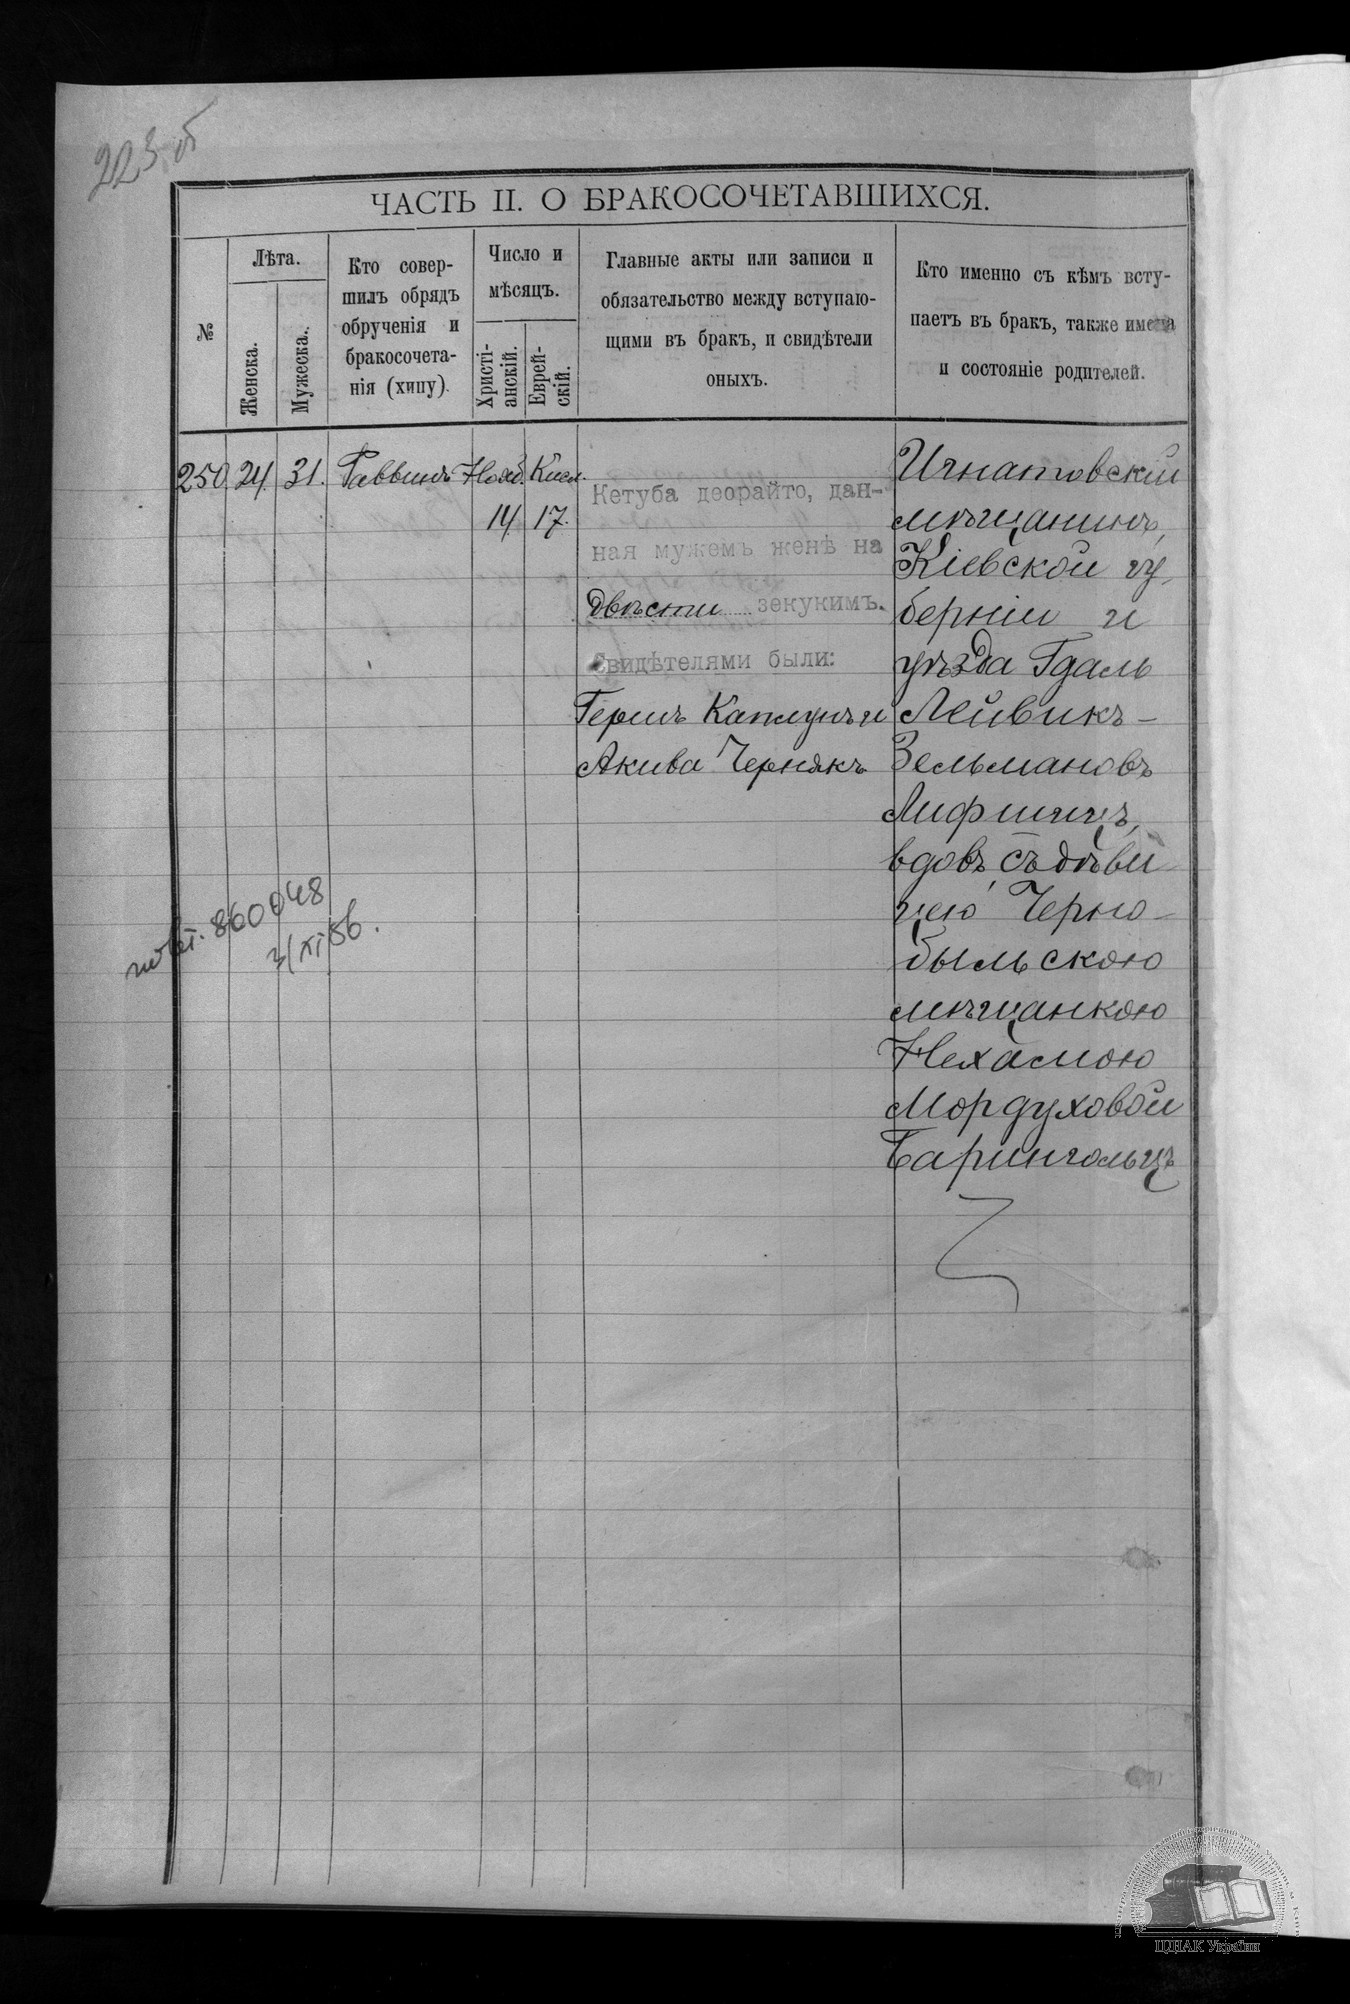 223 об
ЧАСТЬ II. О БРАКОСОЧЕТАВШИХСЯ.
№
Лѣта.
Женска.
Мужеска.
Кто совер-
шилъ обрядъ
обрученія и
бракосочета-
нія (хипу).
Число и
мѣсяцъ.
Христі-
анскій.
Еврей-
скій.
Главные акты или записи и
обязательство между вступаю-
щими въ бракъ, и свидѣтели
оныхъ.
Кто именно съ кѣмъ всту-
паетъ въ бракъ, также имена
и состояніе родителей.
250. 24. 31. Раввинъ Нояб. Кисл.
14 17.
Кетуба деорайто, дан-
ная мужемъ женѣ на
двѣсти зекукимъ.
Свидѣтелями были:
Гершъ Каплунъ и
Акива Чернякъ
Игнатовскій
мѣщанинъ,
Кіевской гу-
берніи и
уѣзда Гдаль
Лейвикъ-
Зельмановъ
Лифшицъ,
вдовъ, съ дѣви-
цею Черно-
быльскою
мѣщанкою
Нехамою
Мордуховой
Барингольцъ
860048
3/XI 56.
ЦДІАК України